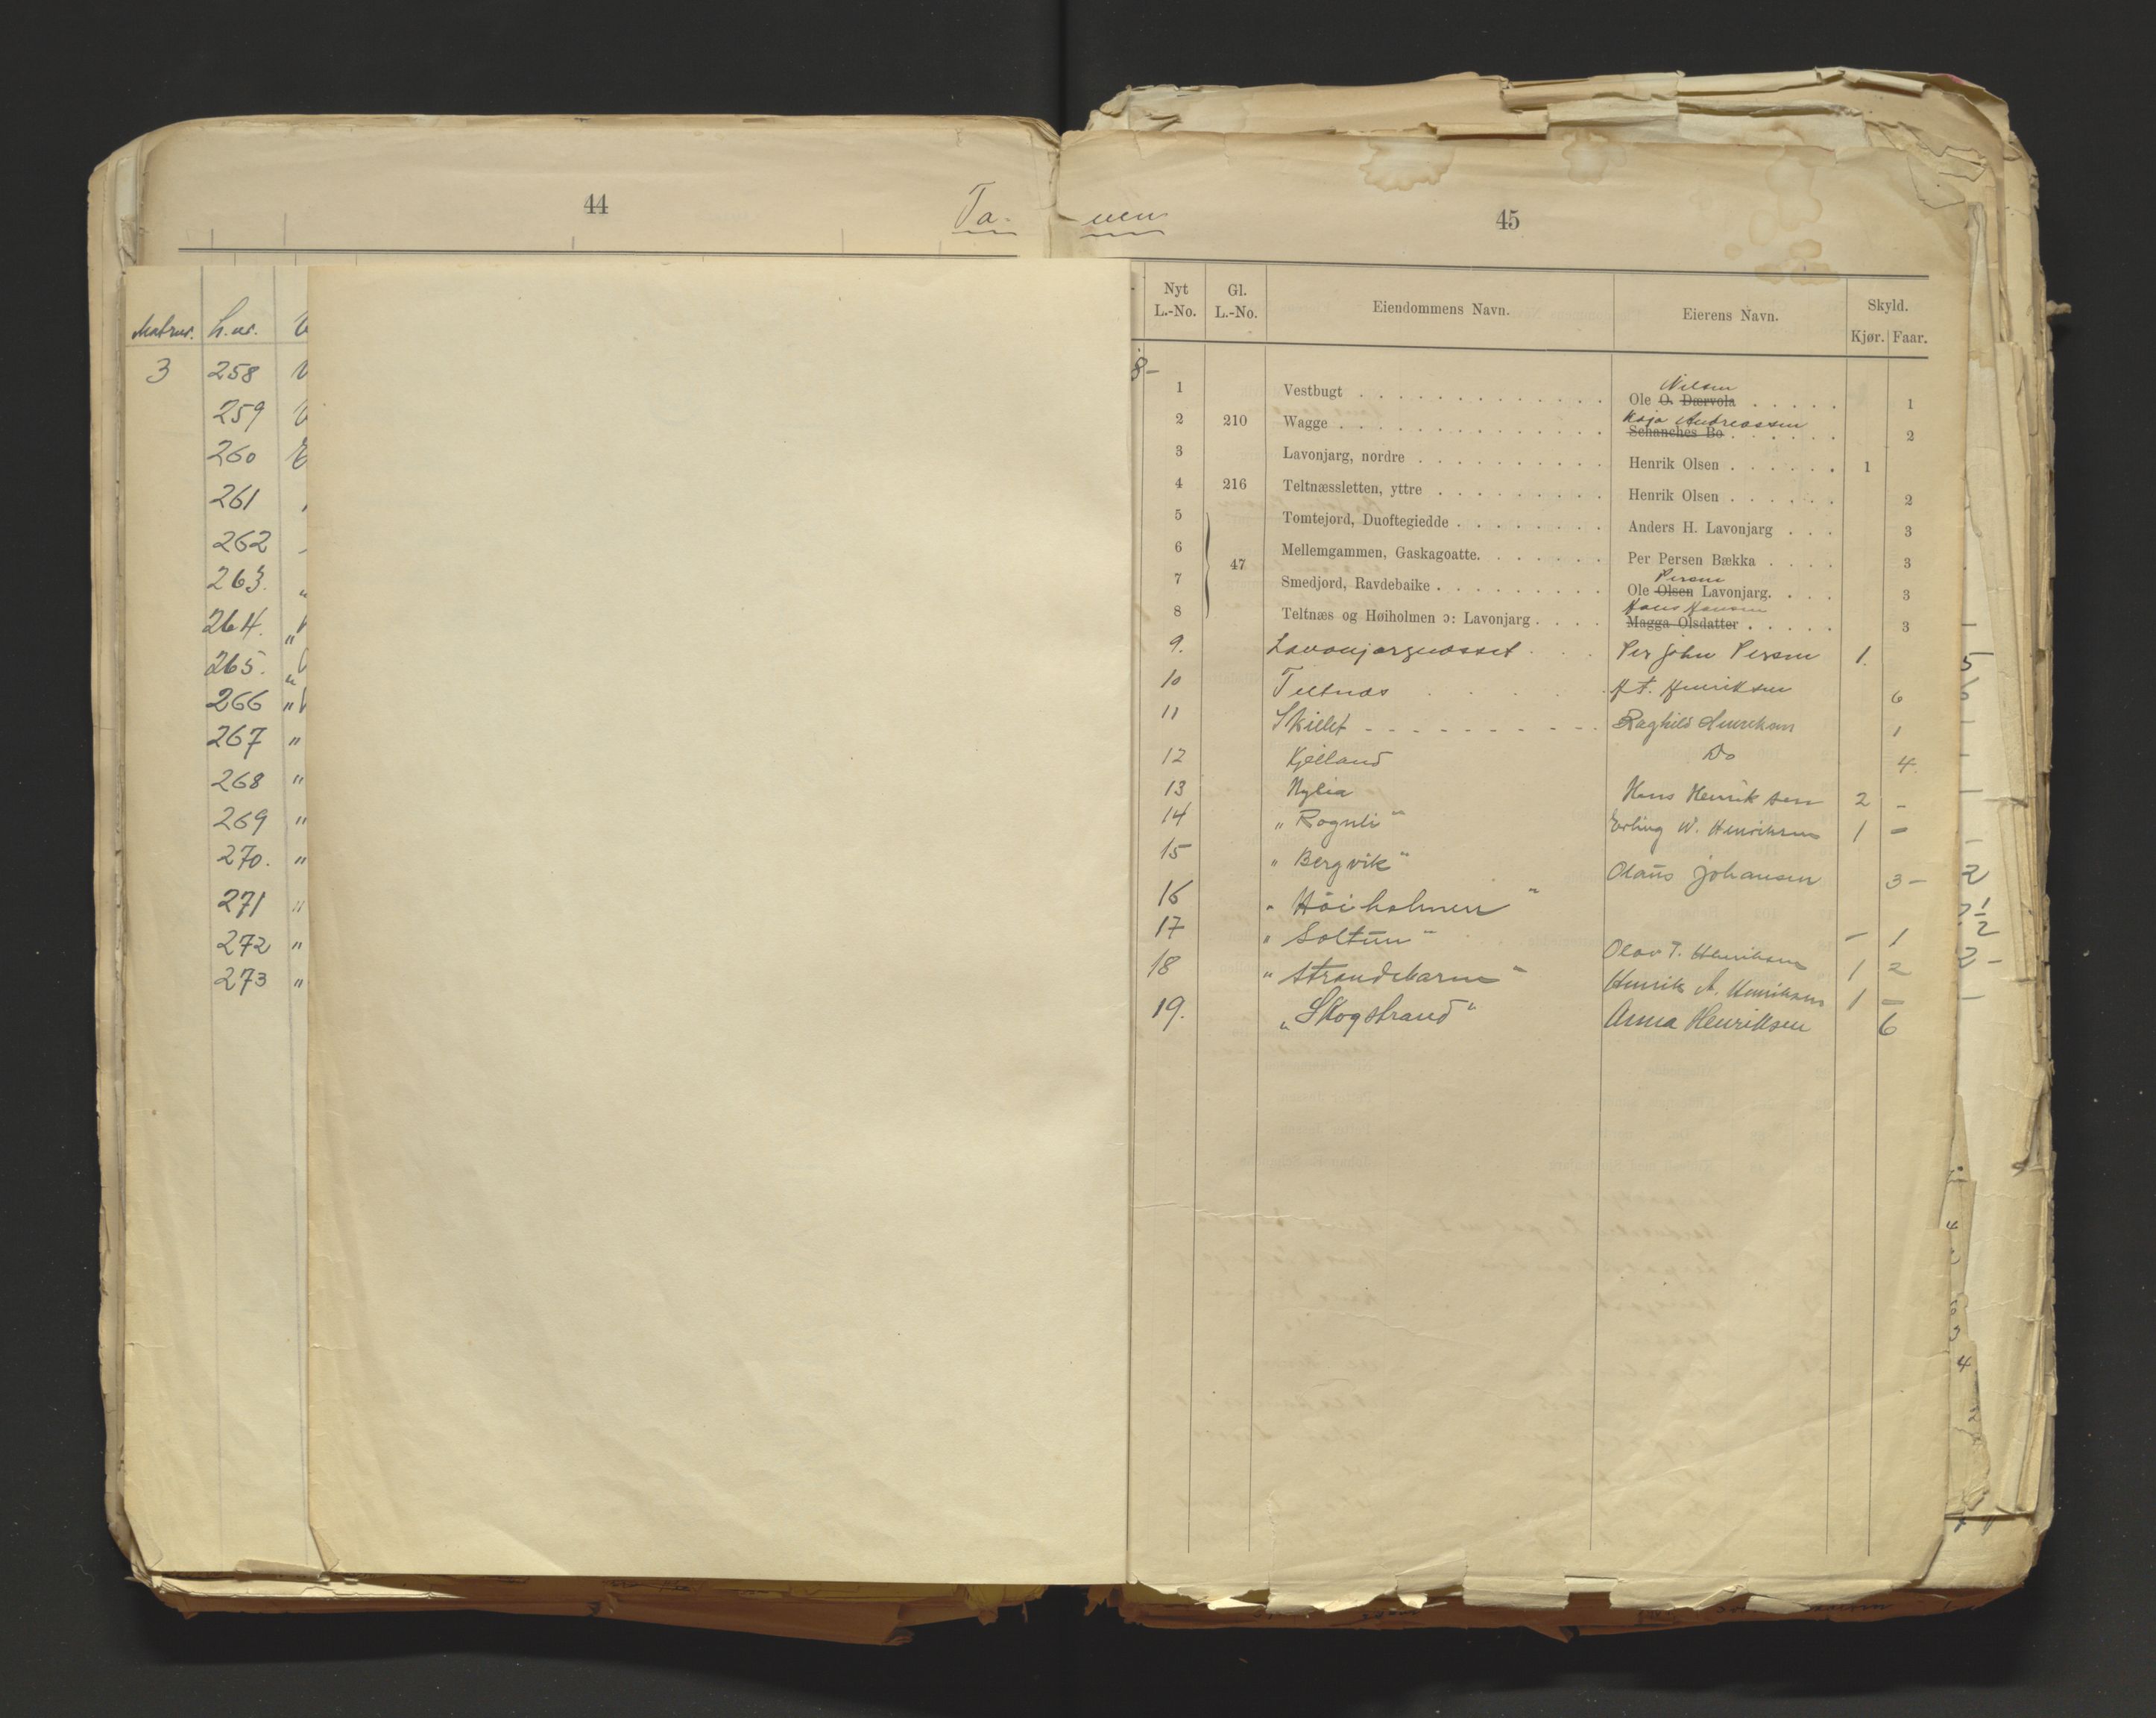 44
Ta-
Matrnr. L.nr.
3 258
259
260
261
262
263. "
264. "
265. "
266 "
267 "
268 "
269 "
270. "
271 "
272 "
273 "
nen
45
Nyt L.-No. Gl. L.-No. Eiendommens Navn. Eierens Navn. Skyld.
Kjør. Faar.
8-
Nilsen
1 Vestbugt . . . . . Ole O. Dærvola . . . . . 1
Kaja Andreassen
2 210 Wagge . . . . . Schanches Bo . . . . . 2
3 Lavonjarg, nordre . . . . . Henrik Olsen . . . . . 1
4 216 Teltnæssletten, yttre . . . . . Henrik Olsen . . . . . 2
5 Tomtejord, Duoftegiedde . . . . . Anders H. Lavonjarg . . . 3
6 Mellemgammen, Gaskagoatte. . . . . . Per Persen Bækka . . . . 3
47
Persen
7 Smedjord, Ravdebaike . . . . . Ole Olsen Lavonjarg. . . . 3
Hans Hansen
8 Teltnæs og Høiholmen ɔ: Lavonjarg . . . . Magga Olsdatter . . . . . 3
9. Lavonjargnæsset . . . Per John Persen 1.
10 Teltnæs . . . . . H. Henriksen 6
11 Skillet - - - - - Raghild Henriksen 1
12 Kjelland Do 4
13 Nylia Hans Henriksen 2 -
14 " Rognli " Erling W. Henriksen 1 -
15 " Bergvik " Olaus Johansen 3 -
16 " Høiholmen "
17 " Soltun " Olav T. Henriksen - 1
18 " Strandebarm " Henrik A. Henriksen 1 2
19. " Skogstrand " Anna Henriksen 1 -
6